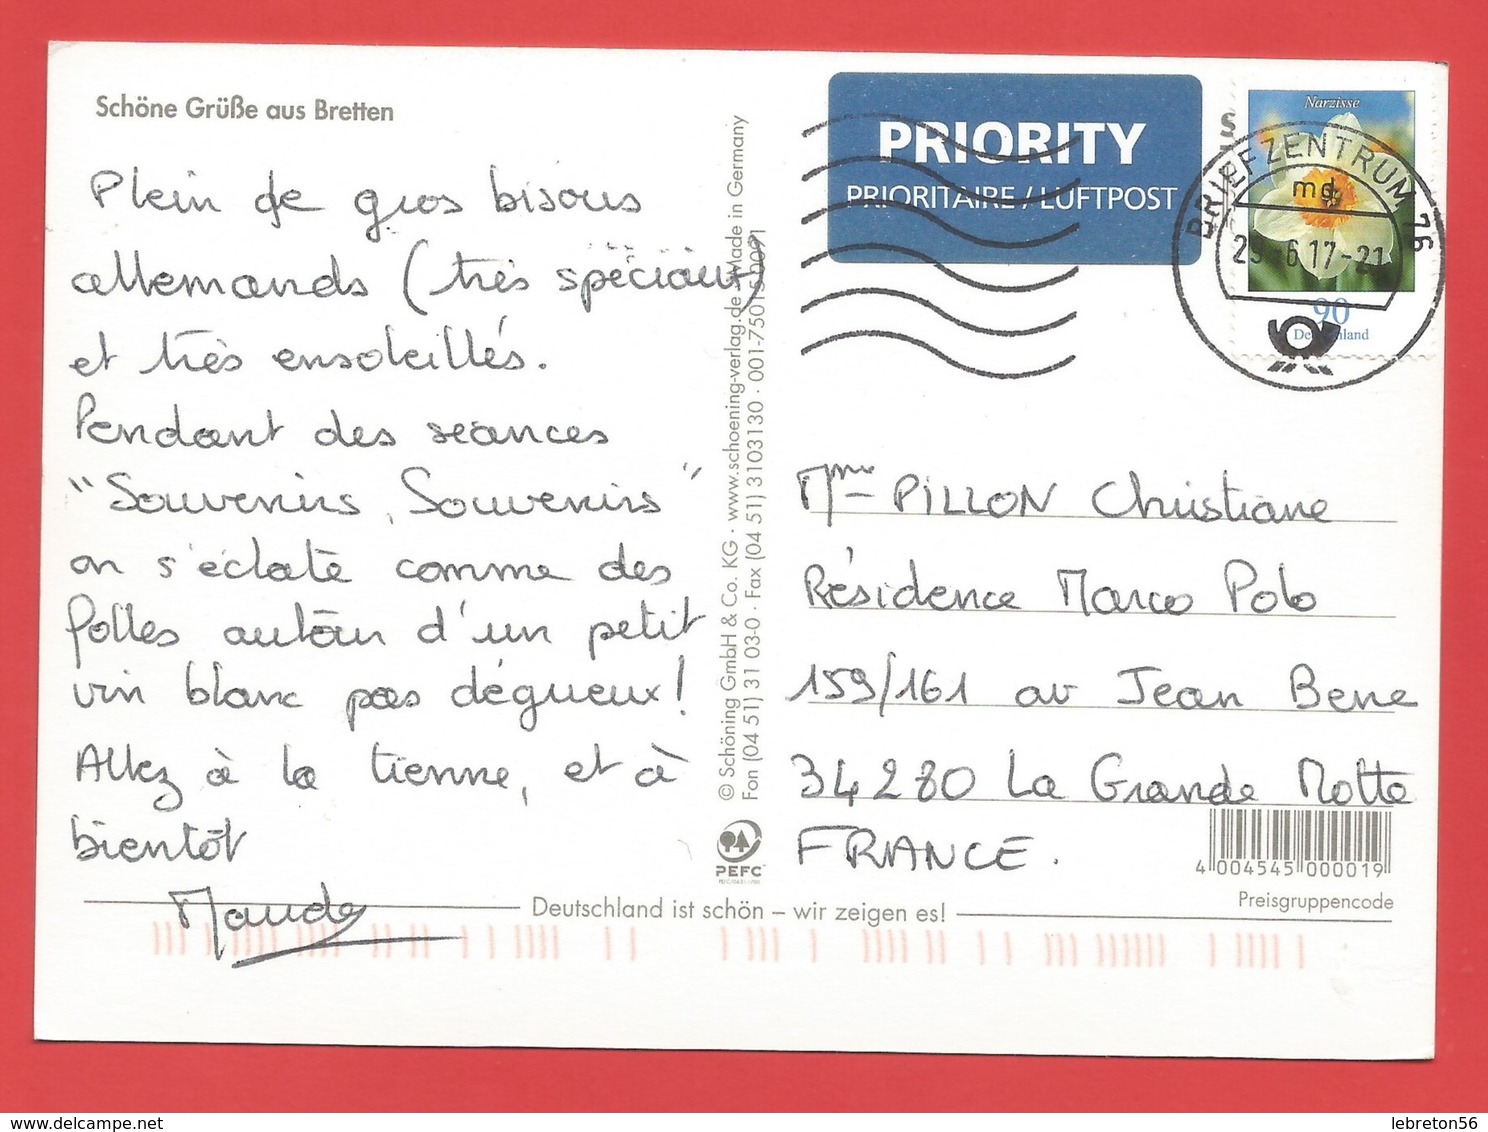 Schöne Grüße aus Bretten
Plein de gros bisous
allemands (très spéciaux)
et très ensoleillés.
Pendant des séances
"Souvenirs, Souvenirs"
on s'éclate comme des
folles autour d'un petit
vin blanc pas dégueux!
Allez à la tienne, et à
bientôt
Maude
© Schöning GmbH & Co. KG · www.schoening-verlag.de · Made in Germany
Fon (04 51) 31 03-0 · Fax (04 51) 3103130 · 001-75015 0091
PEFC
PRIORITY
PRIORITAIRE / LUFTPOST
Narzisse
90
Deutschland
BRIEFZENTRUM 76
md
6.17-21
Mme PILLON Christiane
Résidence Marco Polo
159/161 av Jean Bene
34280 La Grande Motte
FRANCE.
4 004545 000019
Preisgruppencode
Deutschland ist schön – wir zeigen es!
lebreton56